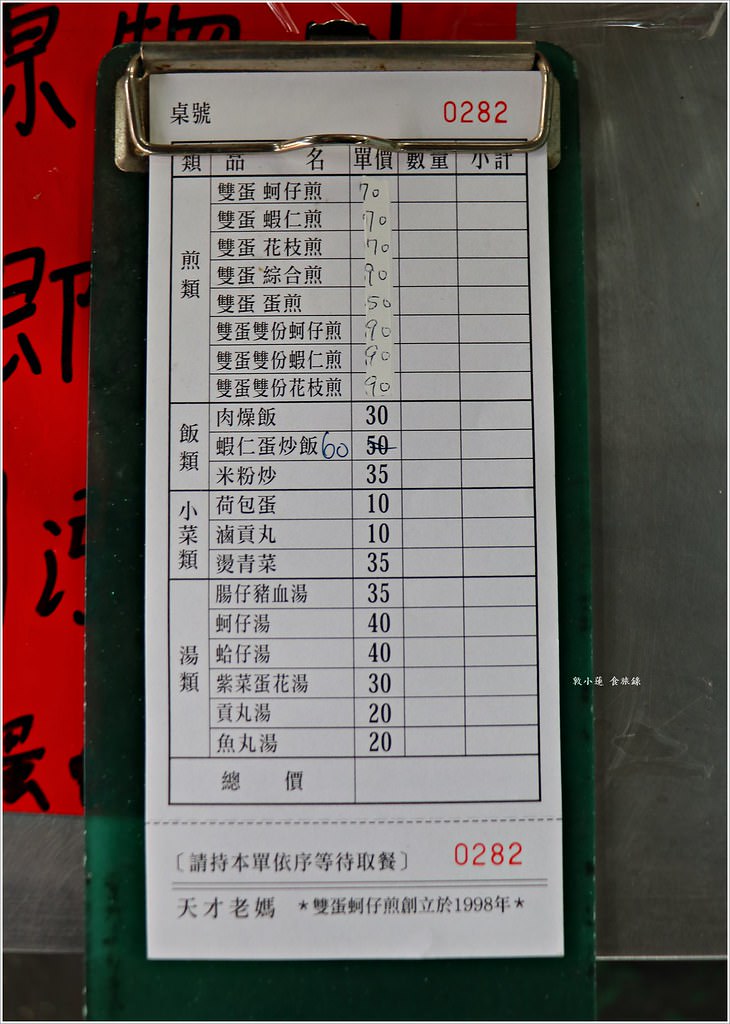 桌號 0282
類 品 名 單價 數量 小計
煎類
雙蛋 蚵仔煎 70
雙蛋 蝦仁煎 70
雙蛋 花枝煎 70
雙蛋 綜合煎 90
雙蛋 蛋煎 50
雙蛋雙份蚵仔煎 90
雙蛋雙份蝦仁煎 90
雙蛋雙份花枝煎 90
飯類
肉燥飯 30
蝦仁蛋炒飯 60 50
米粉炒 35
小菜類
荷包蛋 10
滷貢丸 10
燙青菜 35
湯類
腸仔豬血湯 35
蚵仔湯 40
蛤仔湯 40
紫菜蛋花湯 30
貢丸湯 20
魚丸湯 20
總 價
〔請持本單依序等待取餐〕 0282
天才老媽 *雙蛋蚵仔煎創立於1998年*
敦小蓮 食旅錄